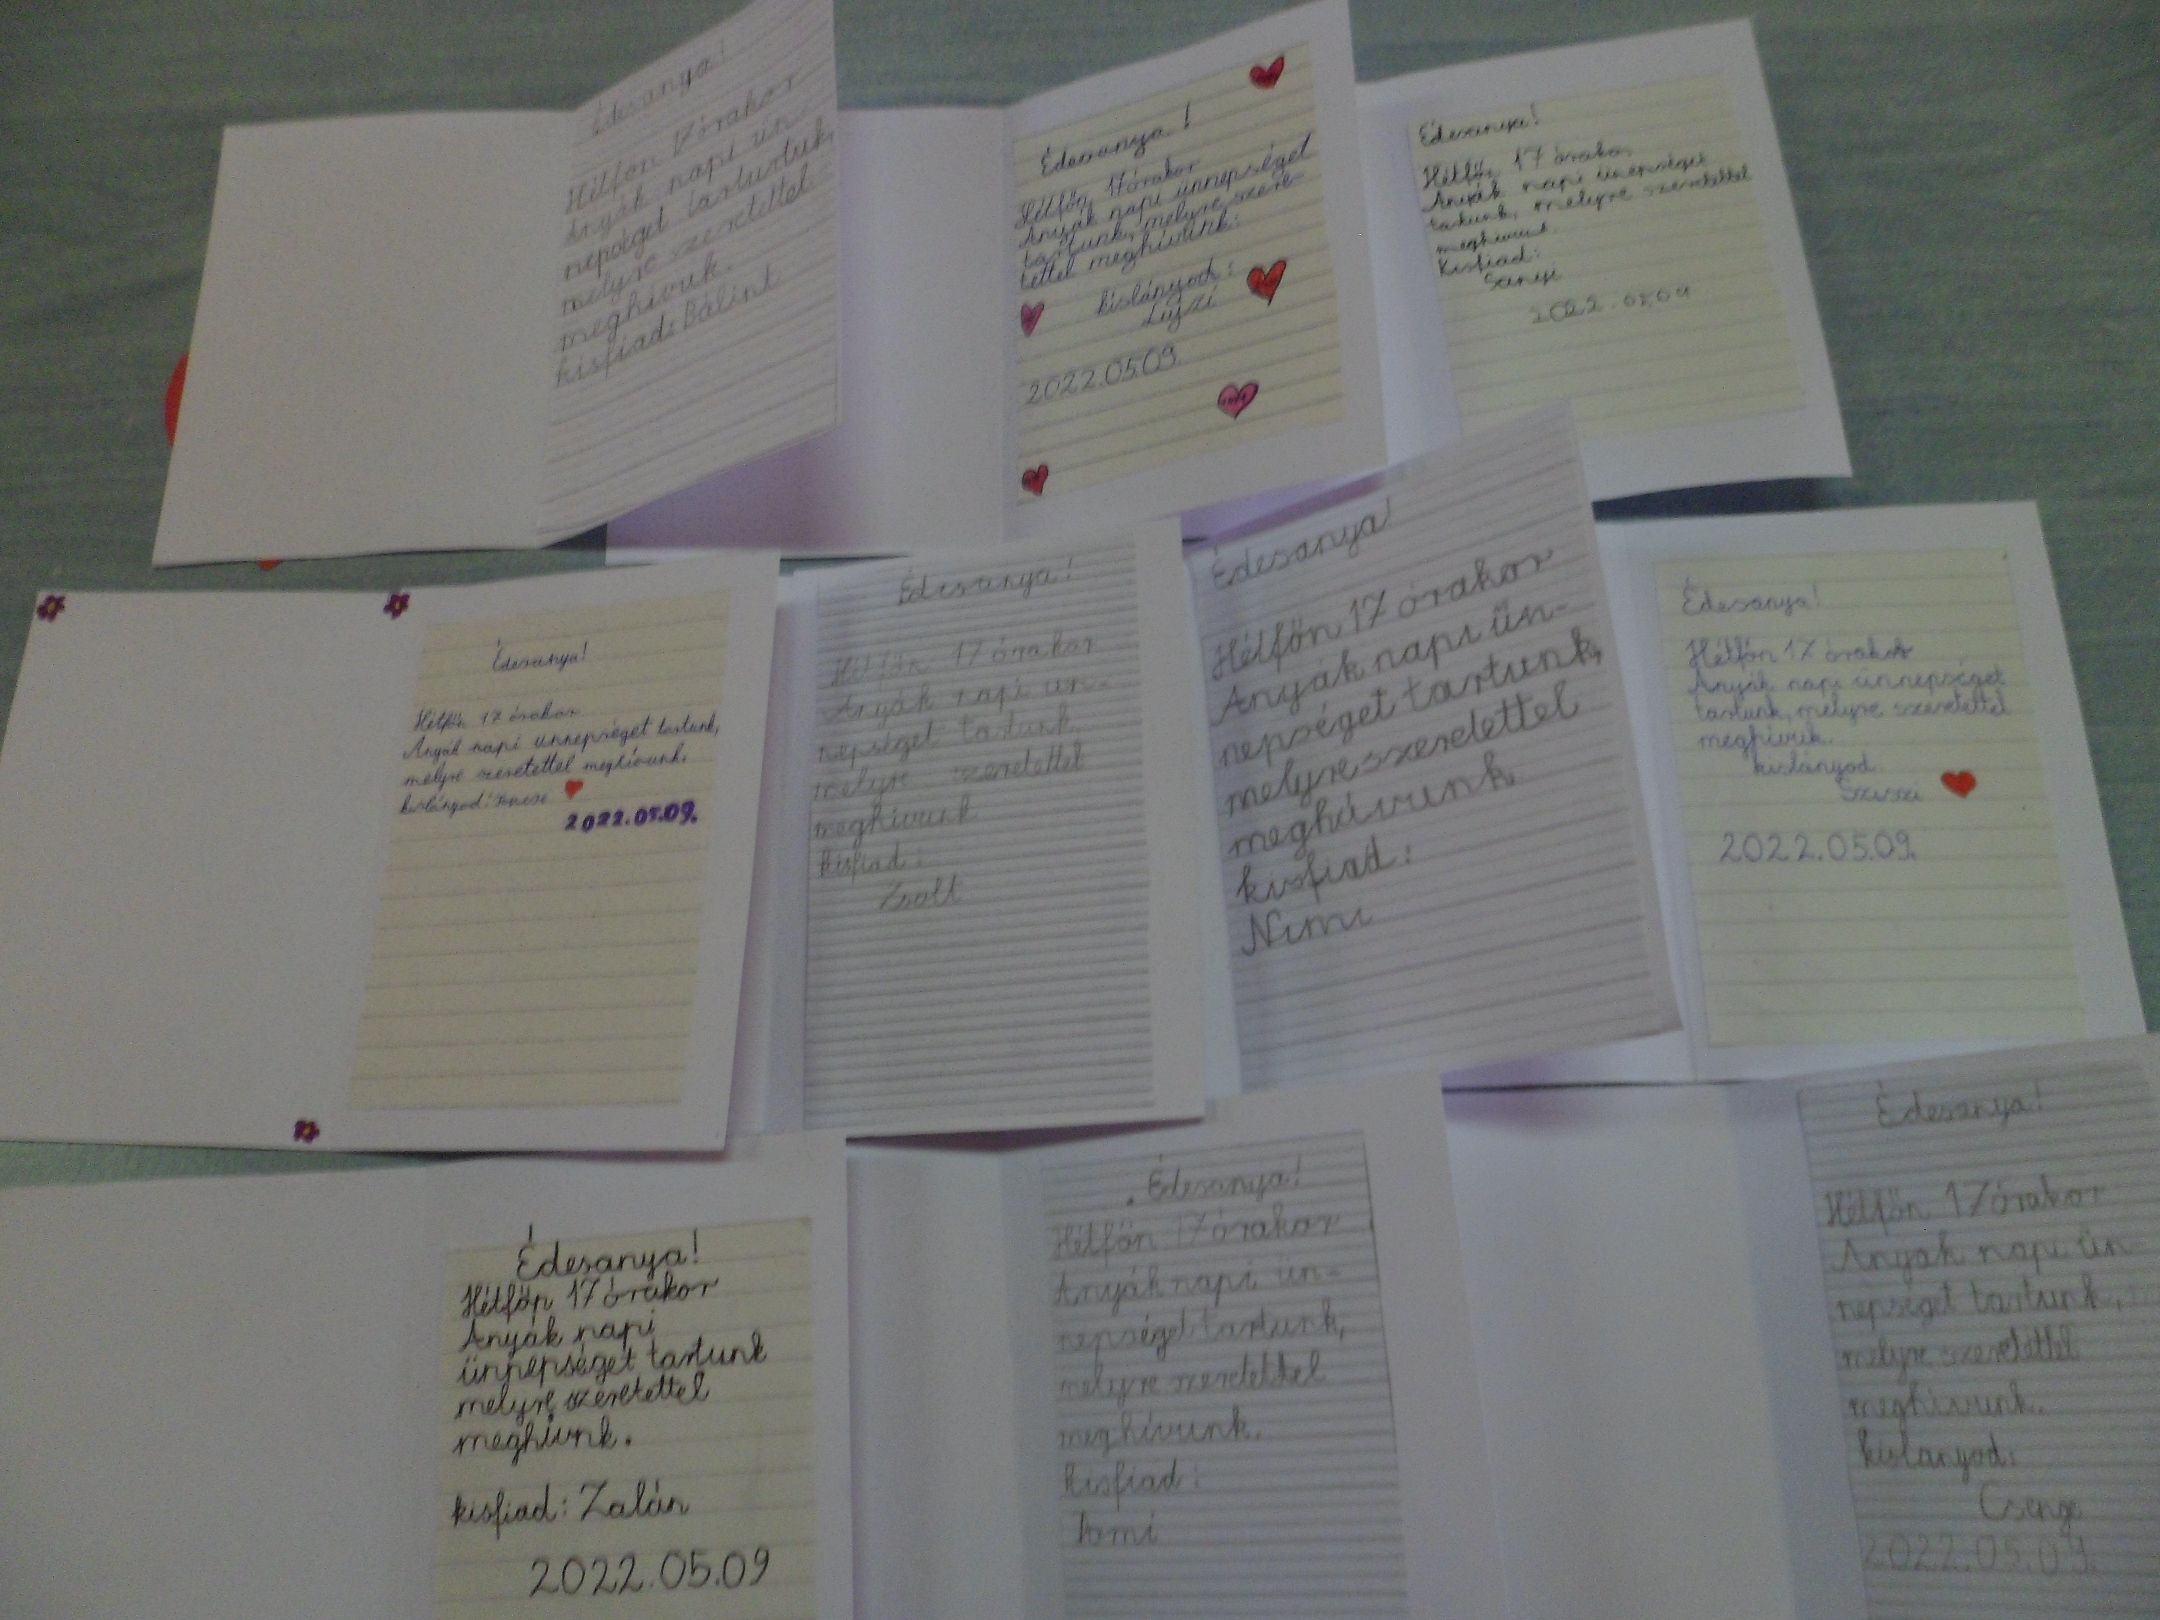 Édesanya!
Hétfőn 17 órakor
Anyák napi ün-
nepséget tartunk,
melyre szeretettel
meghívuk.
kisfiad: Bálint
Édesanya!
Hétfőn 17 órakor
Anyák napi ünnepséget
tartunk, melyre szere-
tettel meghívunk.
kislányod:
Lujzi
2022.05.09.
Édesanya!
Hétfőn 17 órakor
Anyák napi ünnepséget
tartunk, melyre szeretettel
meghívunk.
Kisfiad:
2022.05.09
Édesanya!
Hétfőn 17 órakor
Anyák napi ünnepséget tartunk,
melyre szeretettel meghívunk.
kislányod:
2022.05.09.
Édesanya!
Hétfőn 17 órakor
Anyák napi ün-
nepséget tartunk
melyre szeretettel
meghívunk
kisfiad:
Zsolt
Édesanya!
Hétfőn 17 órakor
Anyák napi ün-
nepséget tartunk,
melyre szeretettel
meghívunk
kisfiad:
Nimi
Édesanya!
Hétfőn 17 órakor
Anyák napi ünnepséget
tartunk, melyre szeretettel
meghívuk.
kislányod
Sziszi
2022.05.09.
Édesanya!
Hétfőn 17 órakor
Anyák napi
ünnepséget tartunk
melyre szeretettel
meghívnk.
kisfiad: Zalán
2022.05.09
Édesanya!
Hétfőn 17 órakor
Anyák napi ün-
nepséget tartunk,
melyre szeretettel
meghívunk.
kisfiad:
Tomi
Édesanya!
Hétfőn 17 órakor
Anyák napi ün
nepséget tartunk,
melyre szeretettel
meghívunk.
kislányod:
Csenge
2022.05.09.